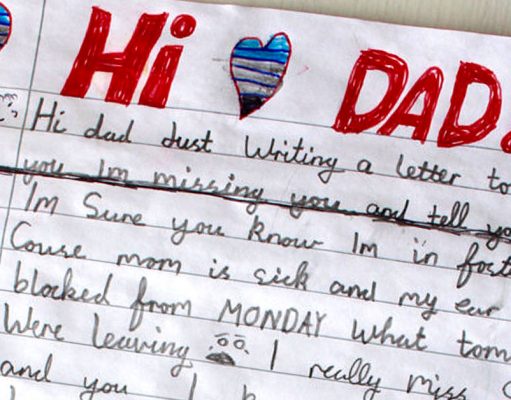 Hi DAD.
Hi dad Just Writing a letter to
you Im missing you and tell yo
Im Sure you know Im in fost
Couse mom is sick and my ear
blocked from MONDAY what tom
Were leaving I really miss
and you I